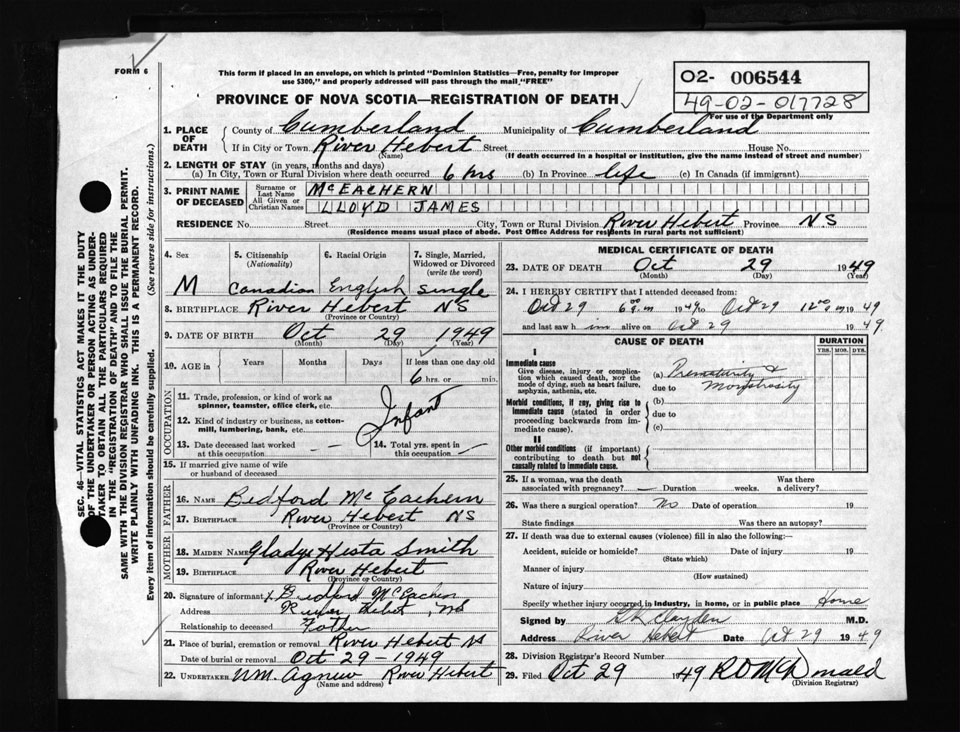 FORM 6
This form if placed in an envelope, on which is printed "Dominion Statistics—Free, penalty for improper
use $300," and properly addressed will pass through the mail "FREE"
O2- 006544
49-02-017728
For use of the Department only
PROVINCE OF NOVA SCOTIA—REGISTRATION OF DEATH
SEC. 46—VITAL STATISTICS ACT MAKES IT THE DUTY
OF THE UNDERTAKER OR PERSON ACTING AS UNDER-
TAKER TO OBTAIN ALL THE PARTICULARS REQUIRED
IN THE "REGISTRATION OF DEATH" AND TO FILE THE
SAME WITH THE DIVISION REGISTRAR WHO SHALL ISSUE THE BURIAL PERMIT.
WRITE PLAINLY WITH UNFADING INK. THIS IS A PERMANENT RECORD.
Every item of information should be carefully supplied. (See reverse side for instructions.)
1. PLACE OF DEATH County of Cumberland Municipality of Cumberland
If in City or Town River Hebert Street House No.
(Name) (If death occurred in a hospital or institution, give the name instead of street and number)
2. LENGTH OF STAY (in years, months and days)
(a) In City, Town or Rural Division where death occurred 6 hrs (b) In Province life (c) In Canada (if immigrant)
3. PRINT NAME OF DECEASED Surname or Last Name McEACHERN
All Given or Christian Names LLOYD JAMES
RESIDENCE No. Street City, Town or Rural Division River Hebert Province N.S
(Residence means usual place of abode. Post Office Address for residents in rural parts not sufficient)
4. Sex 5. Citizenship (Nationality) 6. Racial Origin 7. Single, Married, Widowed or Divorced (write the word)
M Canadian English Single
8. BIRTHPLACE River Hebert NS
(Province or Country)
9. DATE OF BIRTH Oct 29 1949
(Month) (Day) (Year)
10. AGE in Years Months Days If less than one day old
6 hrs. or min.
OCCUPATION
11. Trade, profession, or kind of work as
spinner, teamster, office clerk, etc.
Infant
12. Kind of industry or business, as cotton-
mill, lumbering, bank, etc.
13. Date deceased last worked at this occupation — 14. Total yrs. spent in this occupation —
15. If married give name of wife
or husband of deceased
FATHER
16. NAME Bedford McEachern
17. BIRTHPLACE River Hebert NS
(Province or Country)
MOTHER
18. MAIDEN NAME Gladys Hesta Smith
19. BIRTHPLACE River Hebert
(Province or Country)
20. Signature of informant x Bedford McEachern
Address River Hebert, NS
Relationship to deceased Father
21. Place of burial, cremation or removal River Hebert NS
Date of burial or removal Oct 29-1949
22. UNDERTAKER Wm. Agnew River Hebert
(Name and address)
MEDICAL CERTIFICATE OF DEATH
23. DATE OF DEATH Oct 29 1949
(Month) (Day) (Year)
24. I HEREBY CERTIFY that I attended deceased from:
Oct 29 6 00 a.m 1949 to Oct 29 12 00 m 1949
and last saw him alive on Oct 29 1949
CAUSE OF DEATH DURATION
YRS. MOS. DYS.
I
Immediate cause
Give disease, injury or complica-
tion which caused death, NOT the
mode of dying, such as heart failure,
asphyxia, asthenia, etc.
(a) Prematurity &
due to Monstrosity
Morbid conditions, if any, giving rise to
immediate cause (stated in order
proceeding backwards from im-
mediate cause).
(b)
due to
(c)
II
Other morbid conditions (if important)
contributing to death but not
causally related to immediate cause.
25. If a woman, was the death
associated with pregnancy? — Duration weeks. Was there a delivery?
26. Was there a surgical operation? No Date of operation 19
State findings Was there an autopsy?
27. If death was due to external causes (violence) fill in also the following:—
Accident, suicide or homicide? Date of injury 19
(State which)
Manner of injury
(How sustained)
Nature of injury
Specify whether injury occurred in industry, in home, or in public place Home
Signed by Clayden M.D.
Address River Hebert Date Oct 29 1949
28. Division Registrar's Record Number
29. Filed Oct 29 1949 R D McDonald
(Division Registrar)